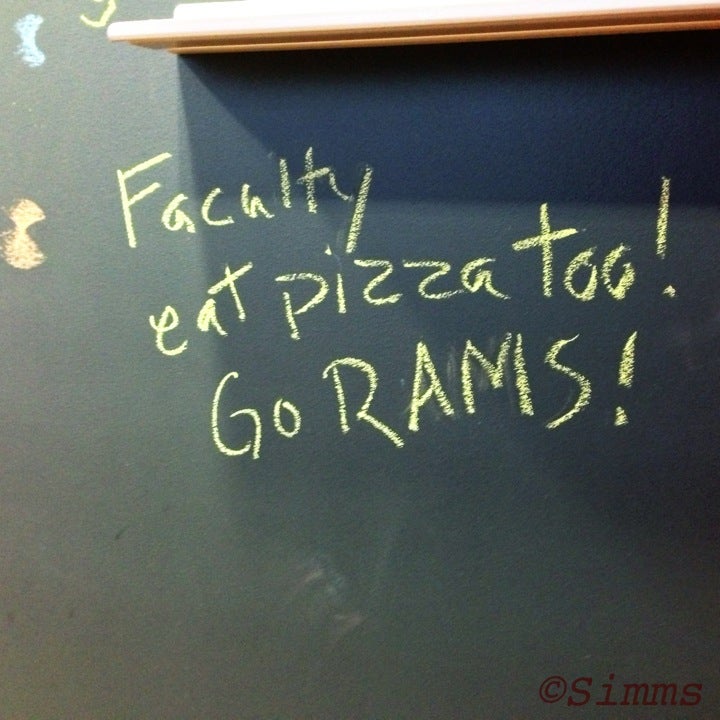 Faculty
eat pizza too!
Go RAMS!
©Simms